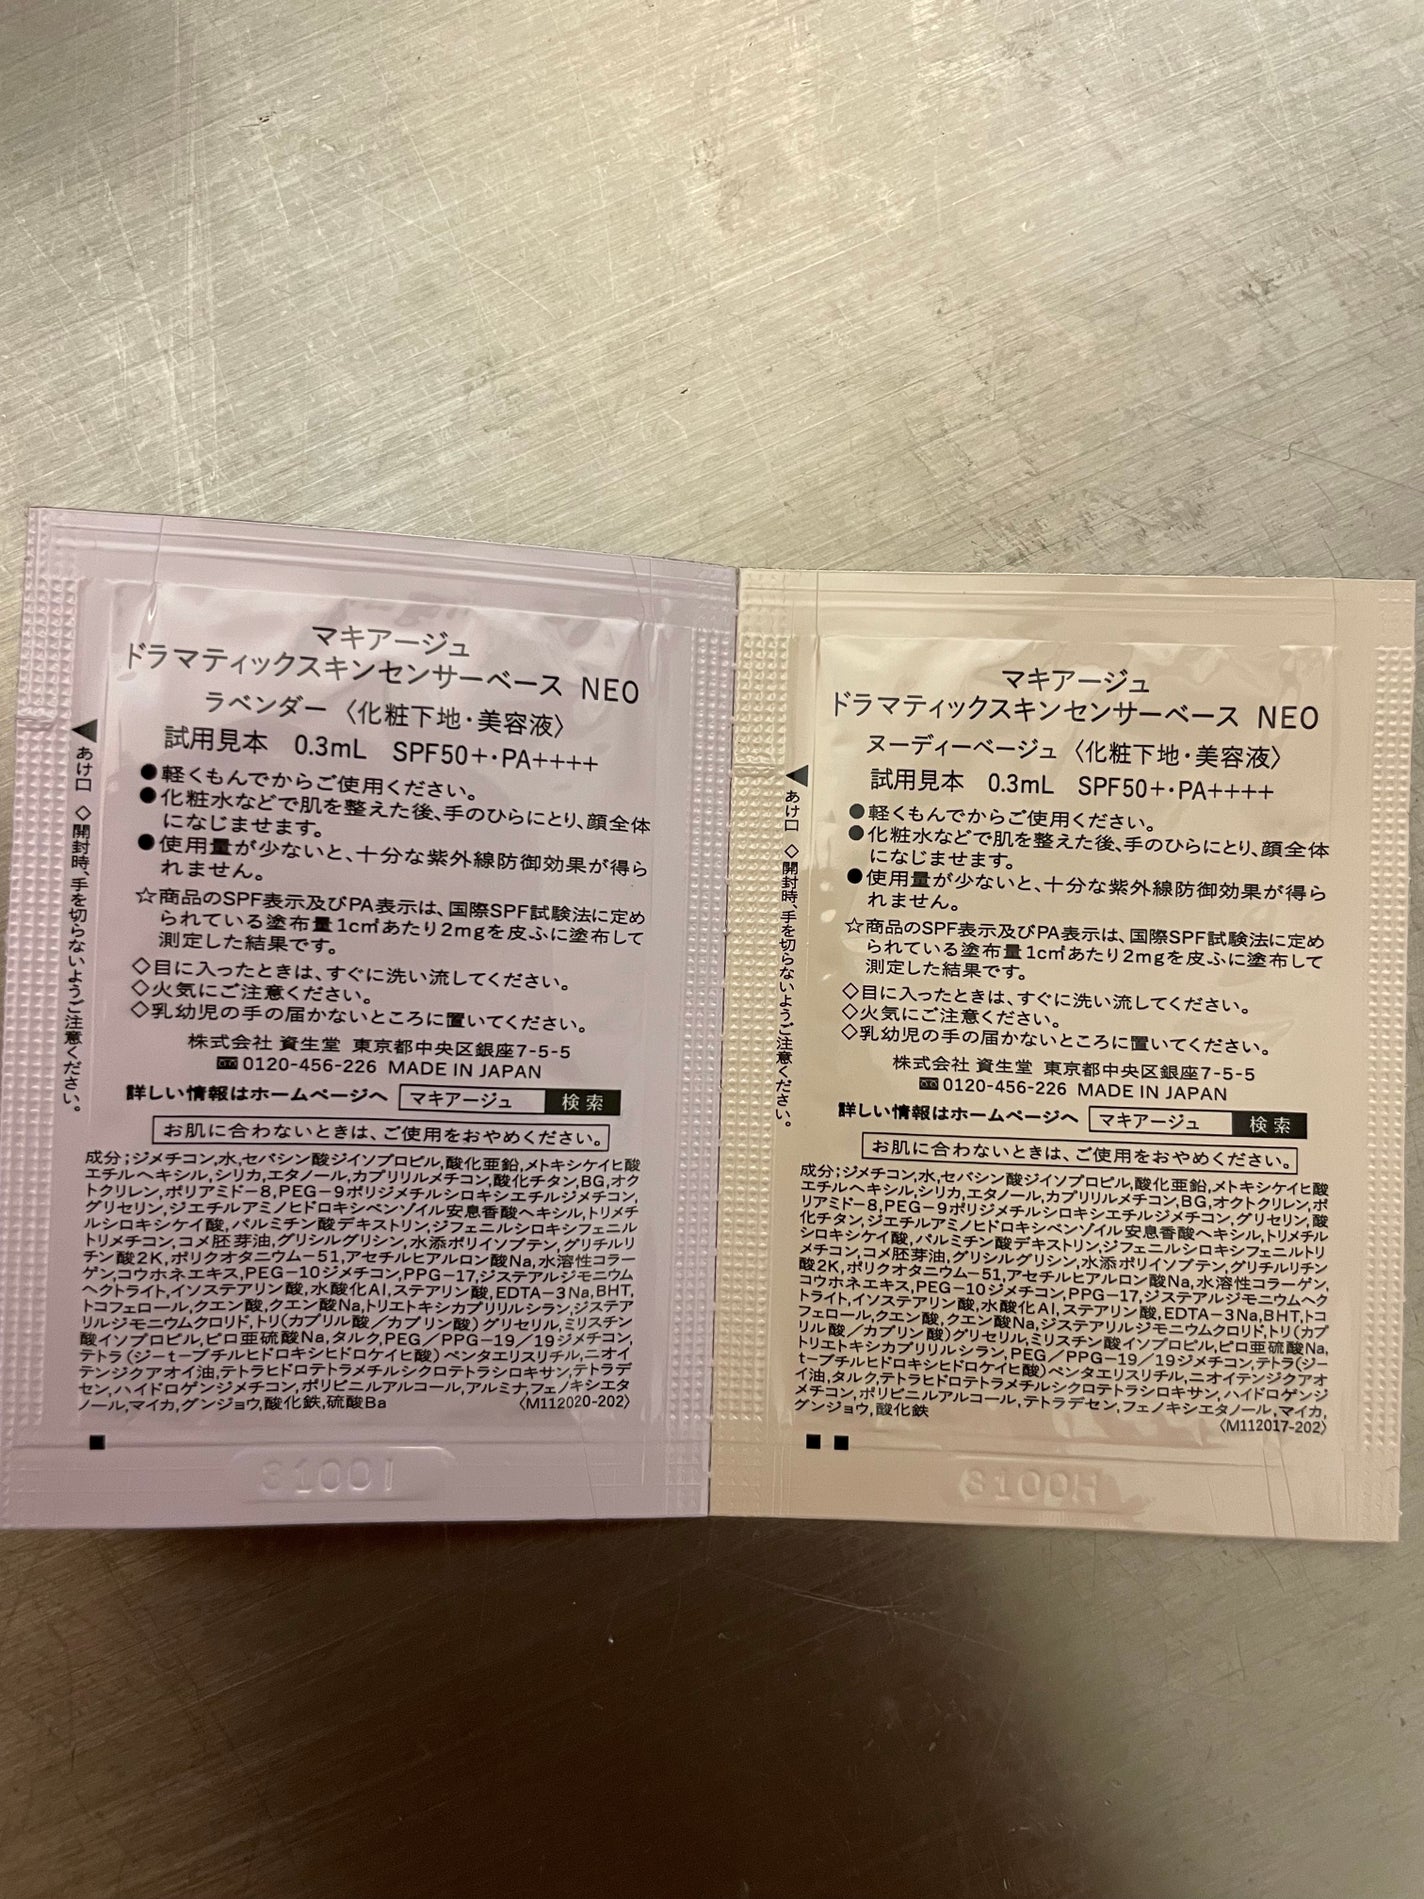 マキアージュ
ドラマティックスキンセンサーベース NEO
ラベンダー〈化粧下地・美容液〉
試用見本 0.3mL SPF50+・PA++++
●軽くもんでからご使用ください。
●化粧水などで肌を整えた後、手のひらにとり、顔全体
になじませます。
●使用量が少ないと、十分な紫外線防御効果が得ら
れません。
☆商品のSPF表示及びPA表示は、国際SPF試験法に定め
られている塗布量1c㎡あたり2mgを皮ふに塗布して
測定した結果です。
◇目に入ったときは、すぐに洗い流してください。
◇火気にご注意ください。
◇乳幼児の手の届かないところに置いてください。
株式会社 資生堂 東京都中央区銀座7-5-5
0120-456-226 MADE IN JAPAN
詳しい情報はホームページへ マキアージュ 検索
お肌に合わないときは、ご使用をおやめください。
成分;ジメチコン,水,セバシン酸ジイソプロピル,酸化亜鉛,メトキシケイヒ酸
エチルヘキシル,シリカ,エタノール,カプリリルメチコン,酸化チタン,BG,オク
トクリレン,ポリアミド-8,PEG-9ポリジメチルシロキシエチルジメチコン,
グリセリン,ジエチルアミノヒドロキシベンゾイル安息香酸ヘキシル,トリメチ
ルシロキシケイ酸,パルミチン酸デキストリン,ジフェニルシロキシフェニル
トリメチコン,コメ胚芽油,グリシルグリシン,水添ポリイソブテン,グリチルリ
チン酸2K,ポリクオタニウム-51,アセチルヒアルロン酸Na,水溶性コラー
ゲン,コウホネエキス,PEG-10ジメチコン,PPG-17,ジステアルジモニウム
ヘクトライト,イソステアリン酸,水酸化Al,ステアリン酸,EDTA-3Na,BHT,
トコフェロール,クエン酸,クエン酸Na,トリエトキシカプリリルシラン,ジステア
リルジモニウムクロリド,トリ(カプリル酸/カプリン酸)グリセリル,ミリスチン
酸イソプロピル,ピロ亜硫酸Na,タルク,PEG/PPG-19/19ジメチコン,
テトラ(ジ-t-ブチルヒドロキシヒドロケイヒ酸)ペンタエリスリチル,ニオイ
テンジクアオイ油,テトラヒドロテトラメチルシクロテトラシロキサン,テトラデ
セン,ハイドロゲンジメチコン,ポリビニルアルコール,アルミナ,フェノキシエタ
ノール,マイカ,グンジョウ,酸化鉄,硫酸Ba 〈M112020-202〉
あけ口 ◇開封時、手を切らないようご注意ください。
3100I
マキアージュ
ドラマティックスキンセンサーベース NEO
ヌーディーベージュ〈化粧下地・美容液〉
試用見本 0.3mL SPF50+・PA++++
●軽くもんでからご使用ください。
●化粧水などで肌を整えた後、手のひらにとり、顔全体
になじませます。
●使用量が少ないと、十分な紫外線防御効果が得ら
れません。
☆商品のSPF表示及びPA表示は、国際SPF試験法に定め
られている塗布量1c㎡あたり2mgを皮ふに塗布して
測定した結果です。
◇目に入ったときは、すぐに洗い流してください。
◇火気にご注意ください。
◇乳幼児の手の届かないところに置いてください。
株式会社 資生堂 東京都中央区銀座7-5-5
0120-456-226 MADE IN JAPAN
詳しい情報はホームページへ マキアージュ 検索
お肌に合わないときは、ご使用をおやめください。
成分;ジメチコン,水,セバシン酸ジイソプロピル,酸化亜鉛,メトキシケイヒ酸
エチルヘキシル,シリカ,エタノール,カプリリルメチコン,BG,オクトクリレン,ポ
リアミド-8,PEG-9ポリジメチルシロキシエチルジメチコン,グリセリン,酸
化チタン,ジエチルアミノヒドロキシベンゾイル安息香酸ヘキシル,トリメチル
シロキシケイ酸,パルミチン酸デキストリン,ジフェニルシロキシフェニルトリ
メチコン,コメ胚芽油,グリシルグリシン,水添ポリイソブテン,グリチルリチン
酸2K,ポリクオタニウム-51,アセチルヒアルロン酸Na,水溶性コラーゲン,
コウホネエキス,PEG-10ジメチコン,PPG-17,ジステアルジモニウムヘク
トライト,イソステアリン酸,水酸化Al,ステアリン酸,EDTA-3Na,BHT,トコ
フェロール,クエン酸,クエン酸Na,ジステアリルジモニウムクロリド,トリ(カプ
リル酸/カプリン酸)グリセリル,ミリスチン酸イソプロピル,ピロ亜硫酸Na,
トリエトキシカプリリルシラン,PEG/PPG-19/19ジメチコン,テトラ(ジ-
t-ブチルヒドロキシヒドロケイヒ酸)ペンタエリスリチル,ニオイテンジクアオ
イ油,タルク,テトラヒドロテトラメチルシクロテトラシロキサン,ハイドロゲンジ
メチコン,ポリビニルアルコール,テトラデセン,フェノキシエタノール,マイカ,
グンジョウ,酸化鉄
〈M112017-202〉
あけ口 ◇開封時、手を切らないようご注意ください。
3100H